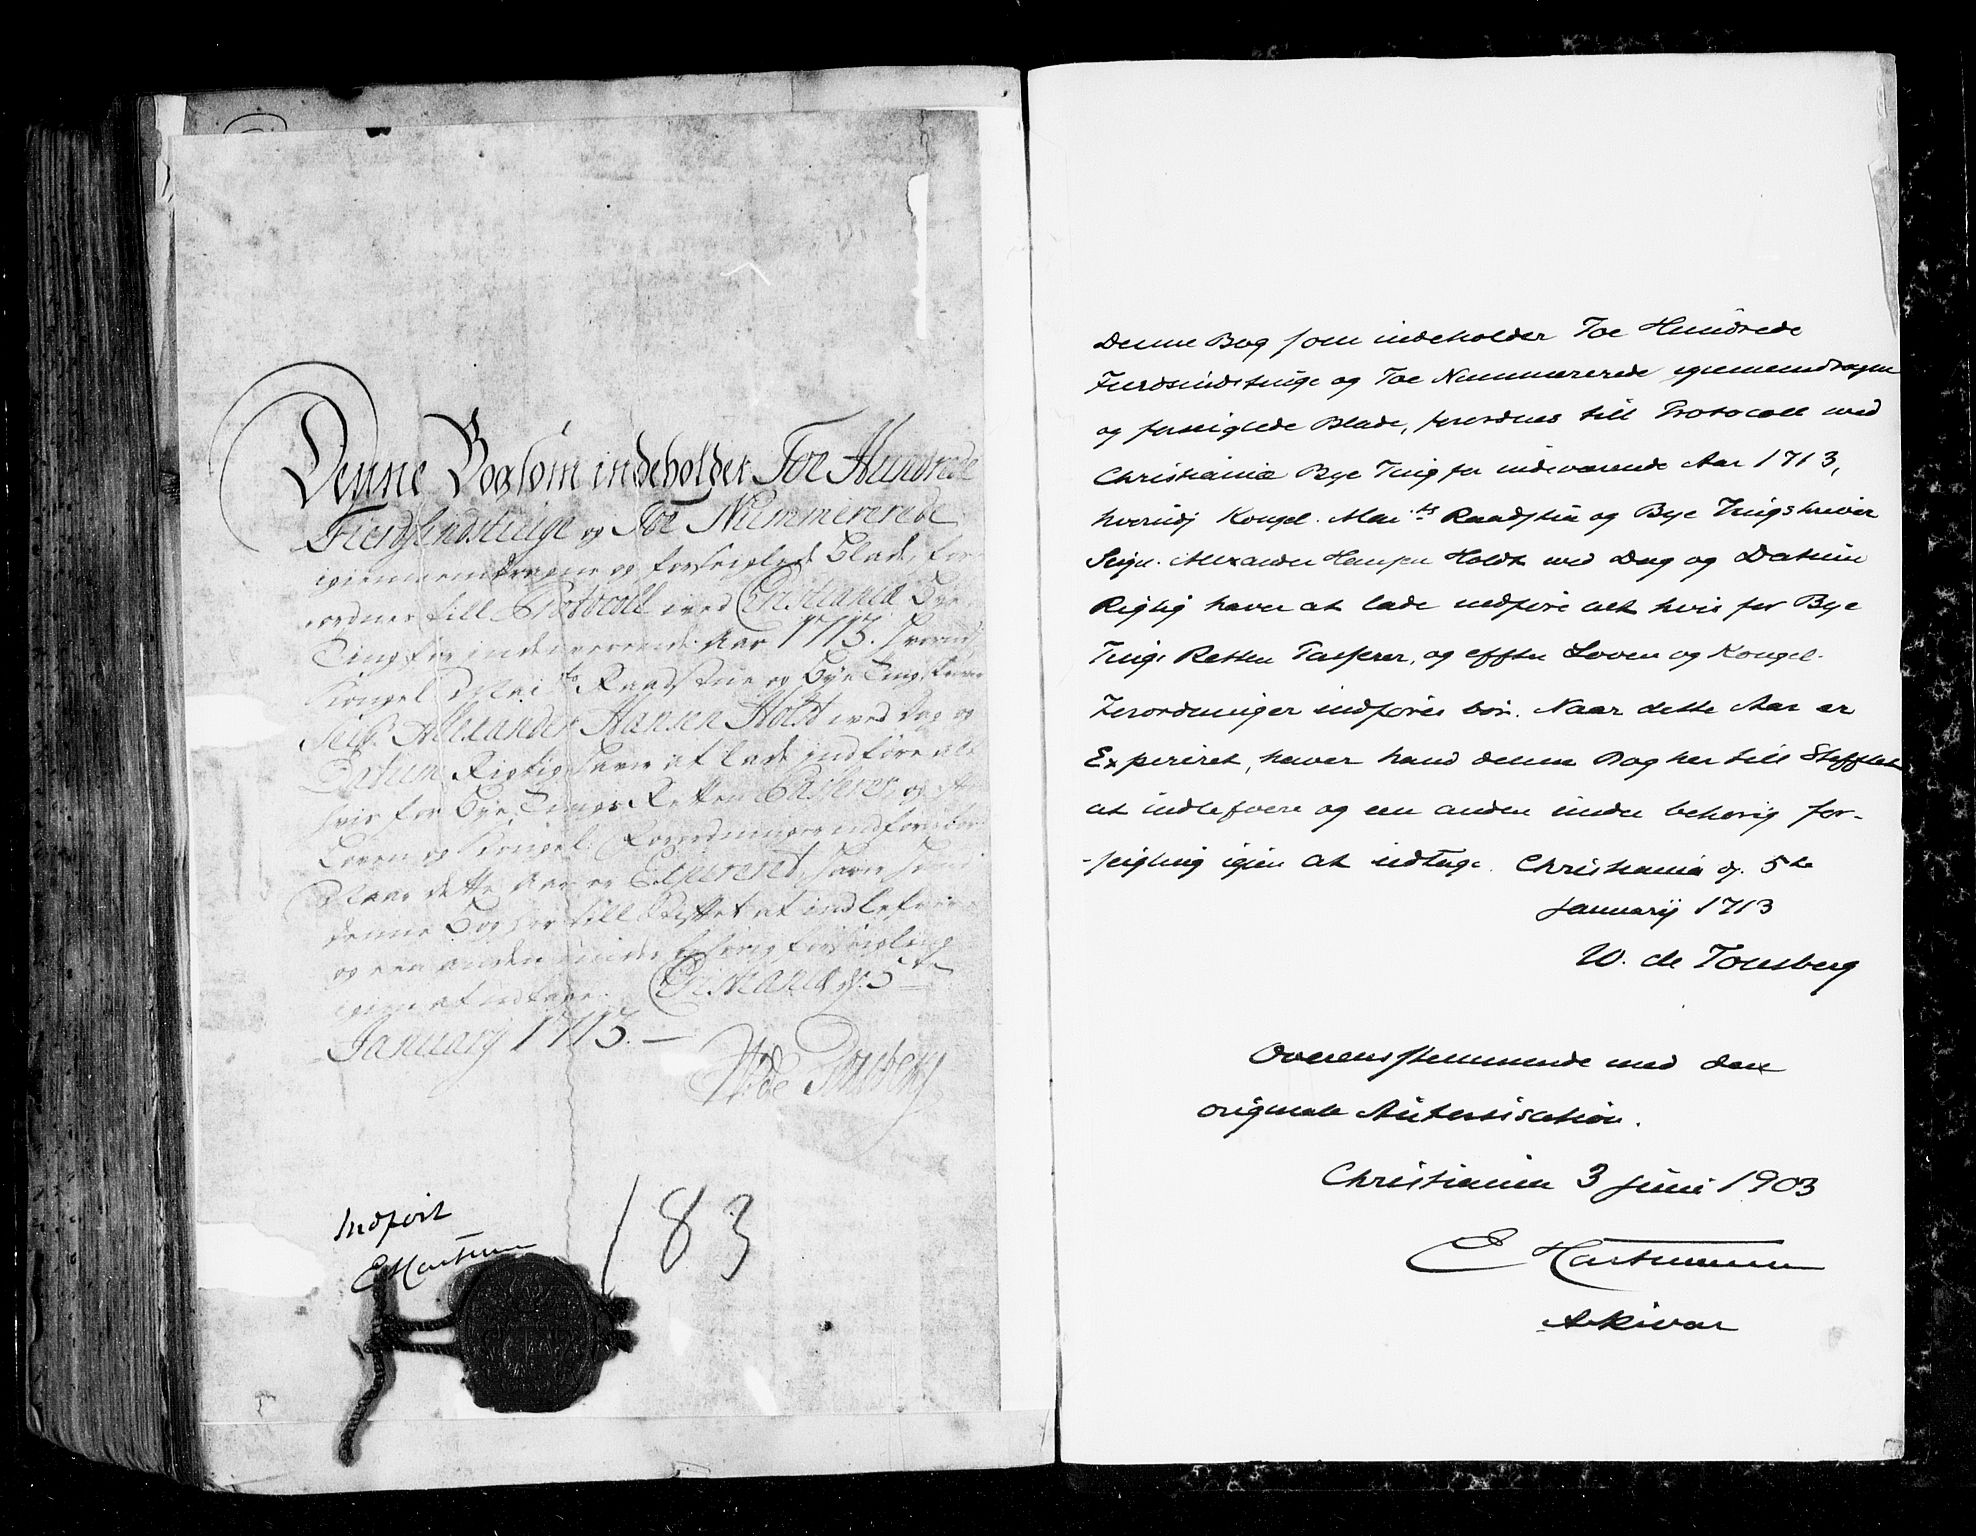 Denne Bog som indeholder Toe Hundrede
Fierdsindstiuge og Toe Nummererede
igiennemdragne og forseiglede Blade, for-
ordnes till Protocoll ved Christiania Bye
Ting for indeværende Aar 1713. hvorudj
Kongel. Mai.ts Raadstue og Bye Tingskriver
Seigr. Alexander Hansen Holst ved Dag og
Datum Rigtig haver at lade indføre alt
hvis for Bye Tings Retten Passerer, og effter
Loven og Kongel. Forordninger indføres bør.
Naar dette Aar er Expireret, haver hand
denne Bog her till Stifftet at indlefvere
og een anden under behørig forseigling
igien at indtage. Christiania d. 5te
Januarij 1713.
W. de Tonsberg
183
Indført
E Hartmann
Denne Bog som indeholder Toe Hundrede
Fierdsindstiuge og Toe Nummererede igiennemdragen
og forseiglede Blade, forordnes till Protocoll ved
Christiania Bye Ting for indeværende Aar 1713,
hvorudj Kongel. Mai.ts Raadstue og Bye Tingskriver
Seigr. Alexander Hansen Holdt ved Dag og Datum
Rigtig haver at lade indføre alt hvis for Bye
Tings Retten Passerer, og effter Loven og Kongel.
Forordninger indføres bør. Naar dette Aar er
Expireret, haver hand denne Bog her till Stifftet
at indlefvere og een anden under behørig for-
-seigling igien at indtage. Christiania d. 5te
Januarij 1713
W. de Tonsberg
Overensstemmende med den
originale Autorisation.
Christiania 3 Juni 1903
E Hartmann
Arkivar